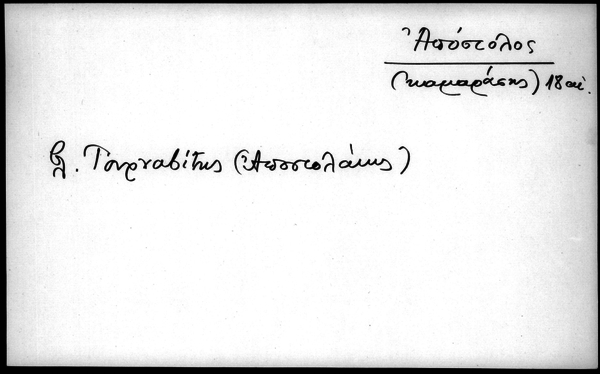 Ἀπόστολος
(καμαράσης) 18 αἰ.
βλ. Τουρναβίτης (Ἀποστολάκης)